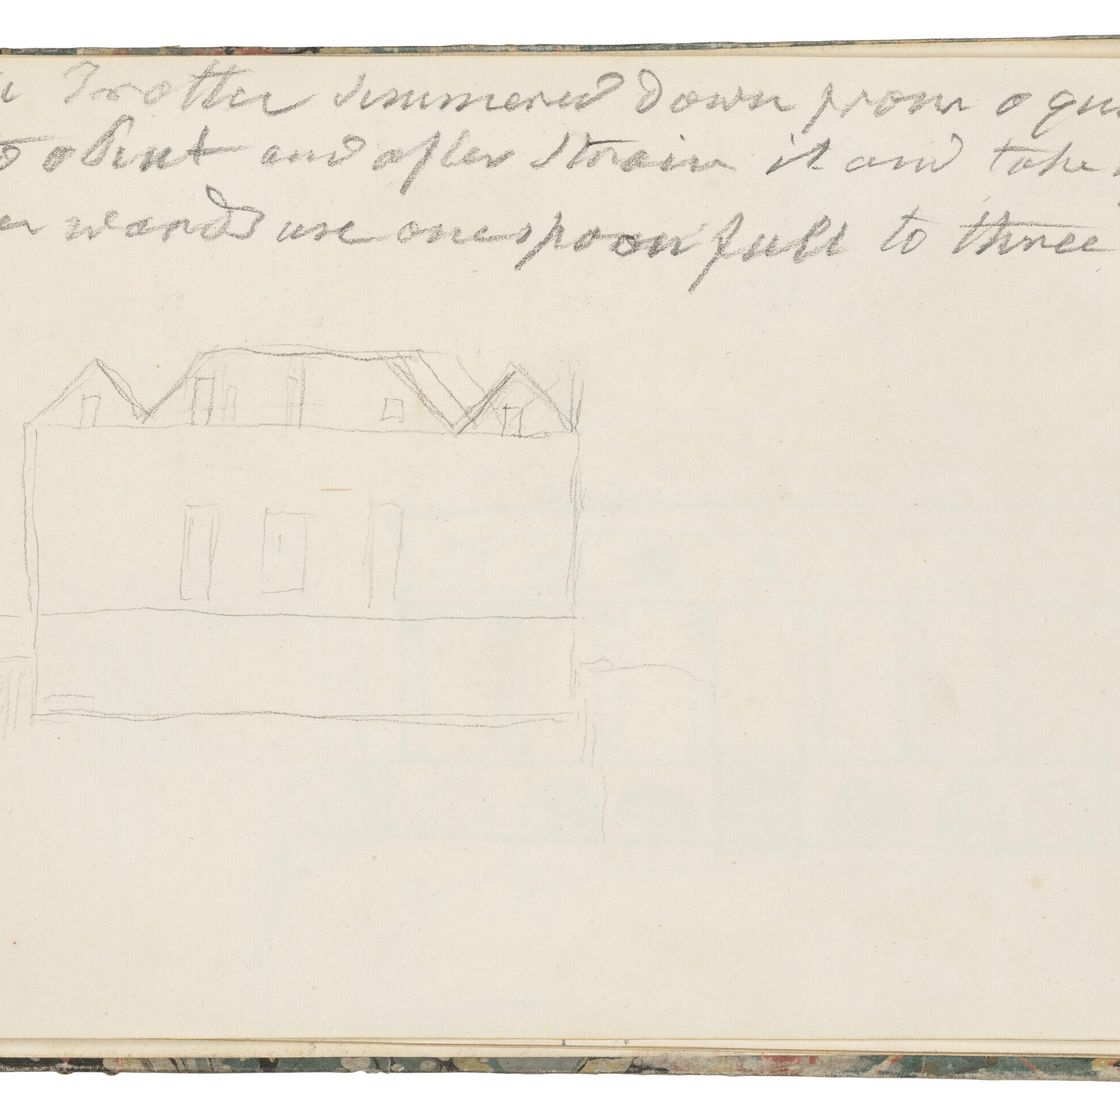 Trotter simmered down from a qu
to a Pint and after strain it and take
er wards use one spoonfull to three